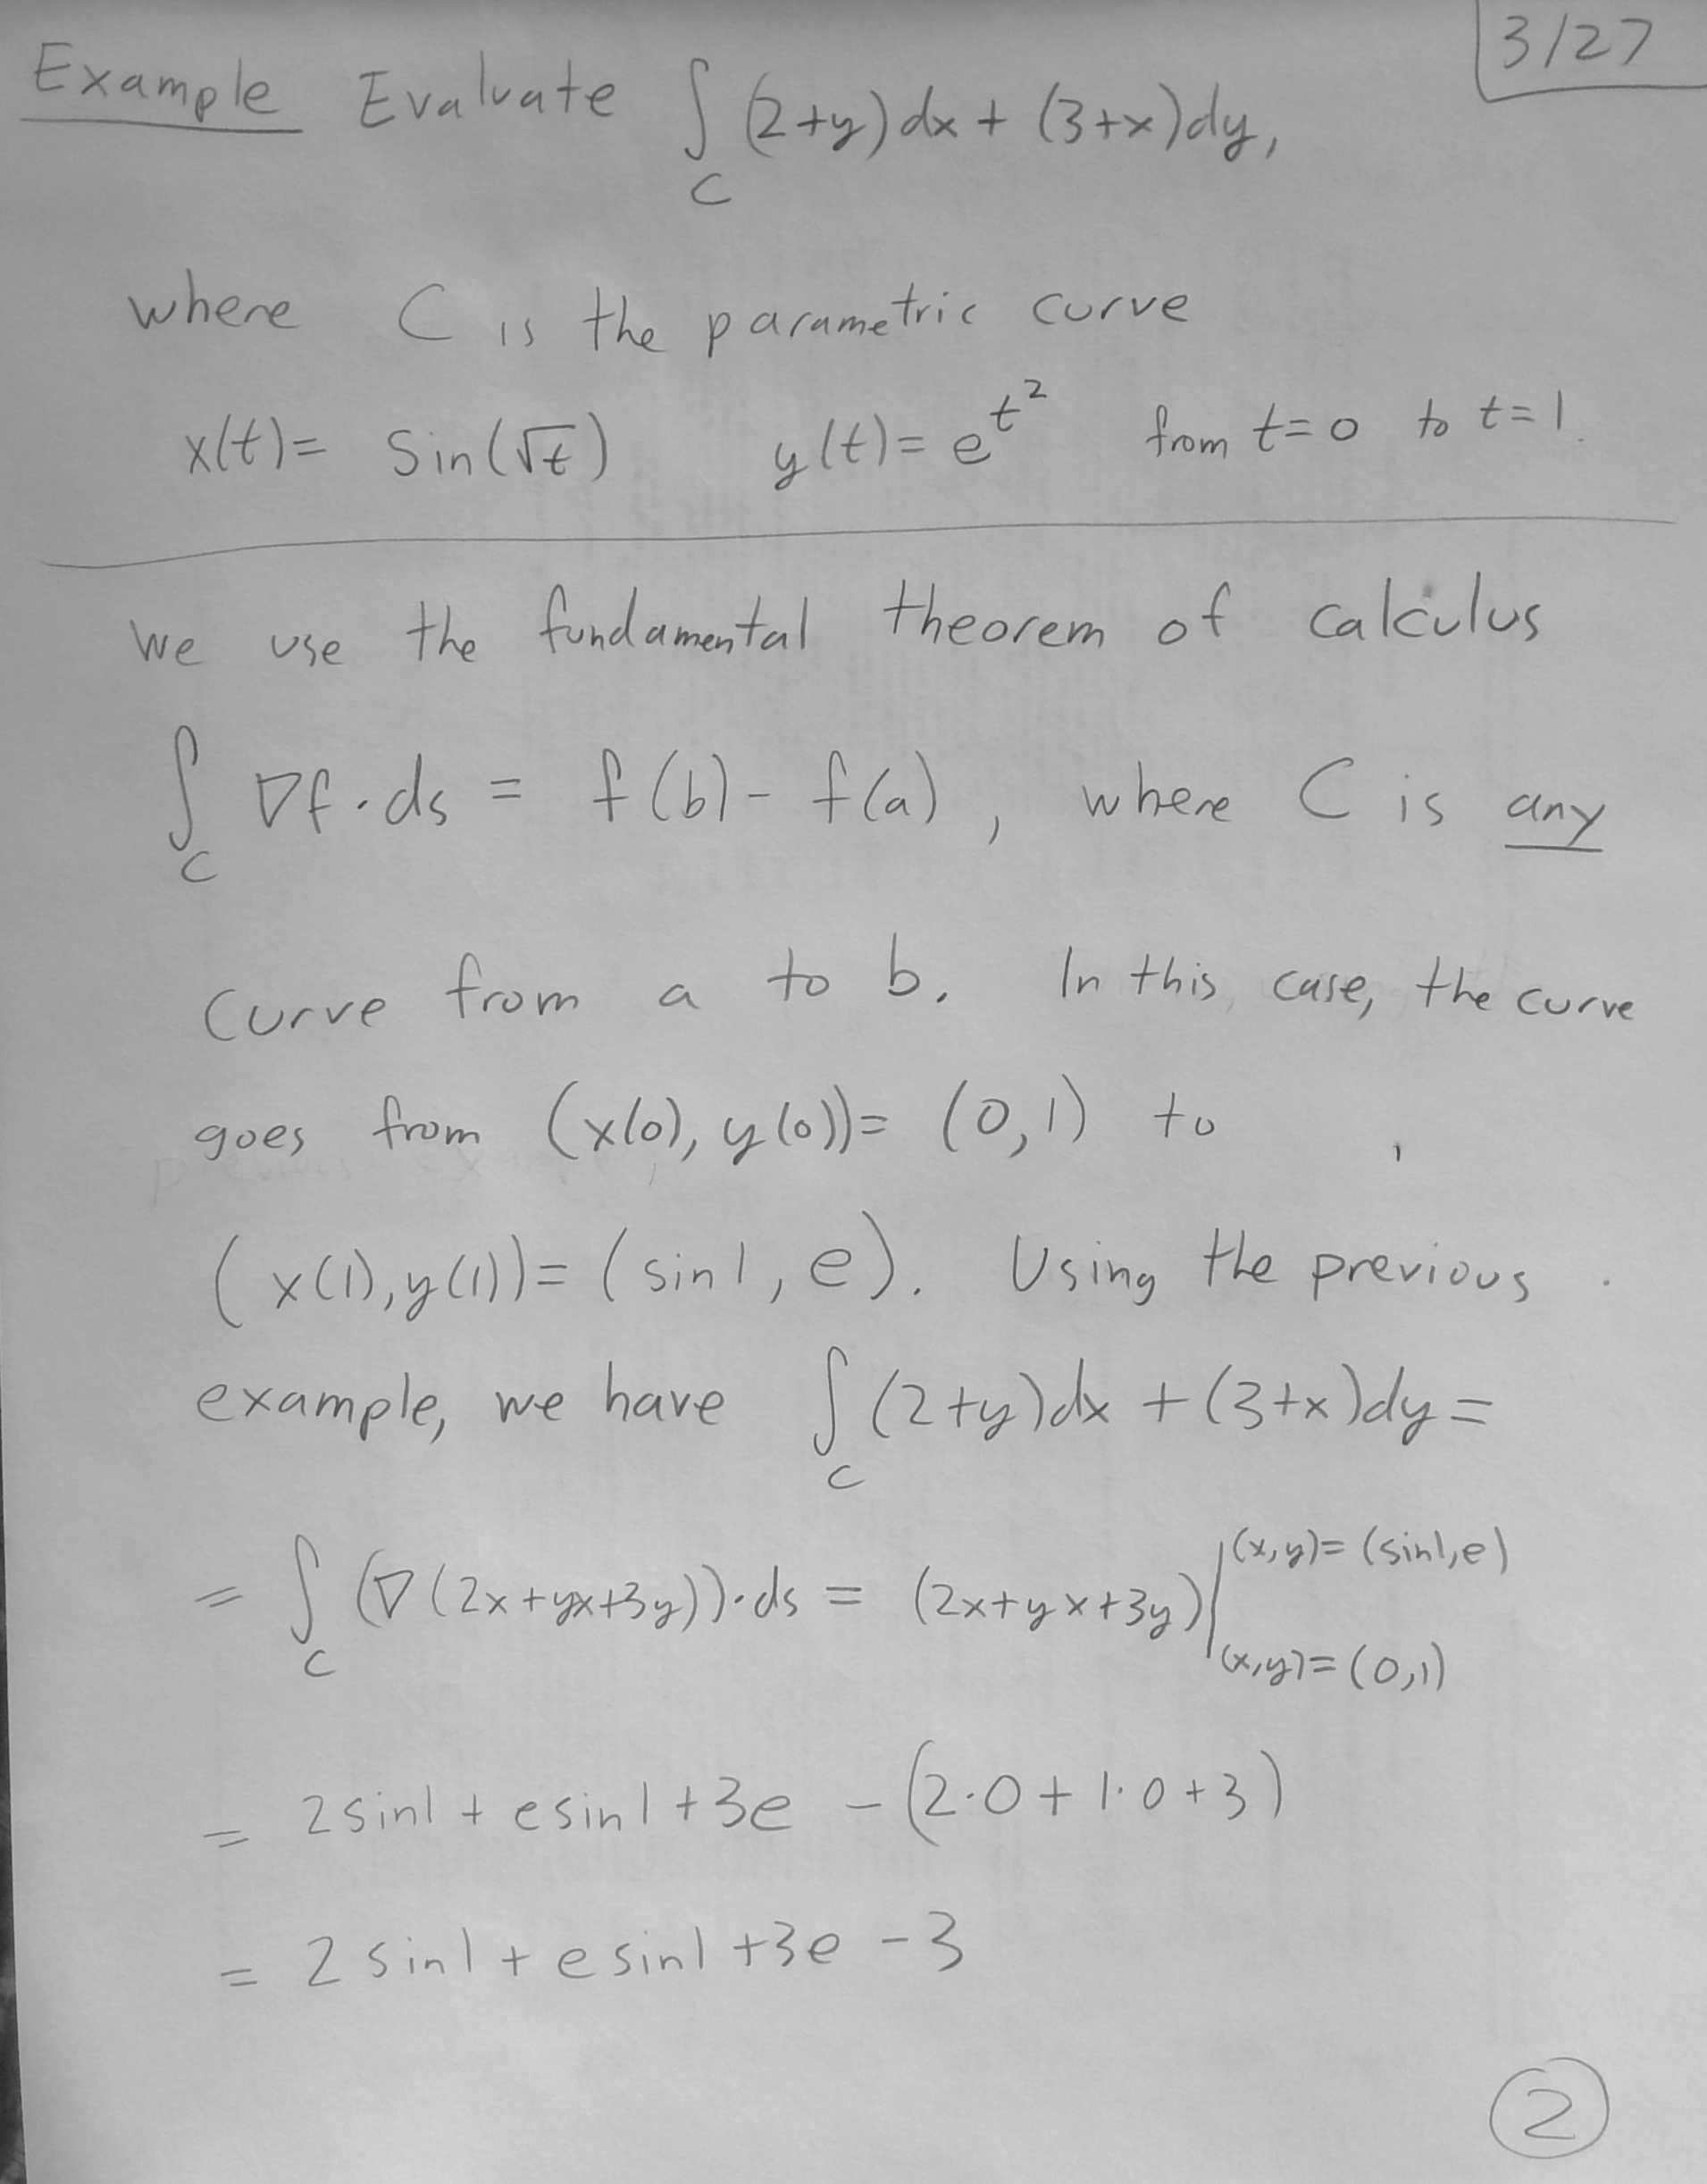 3/27
Example Evaluate ∫_C (2+y)dx + (3+x)dy,
where C is the parametric curve
x(t)= Sin(√t) y(t)= e^{t^2} from t=0 to t=1.
We use the fundamental theorem of calculus
∫_C ∇f·ds = f(b)- f(a), where C is any
curve from a to b. In this case, the curve
goes from (x(0), y(0))= (0,1) to
(x(1),y(1))= (sin1, e). Using the previous
example, we have ∫_C (2+y)dx + (3+x)dy=
= ∫_C (∇(2x+yx+3y))·ds = (2x+yx+3y)|_{(x,y)=(0,1)}^{(x,y)=(sin1,e)}
= 2sin1 + esin1 +3e - (2·0 + 1·0 + 3)
= 2sin1 + esin1 +3e -3
2